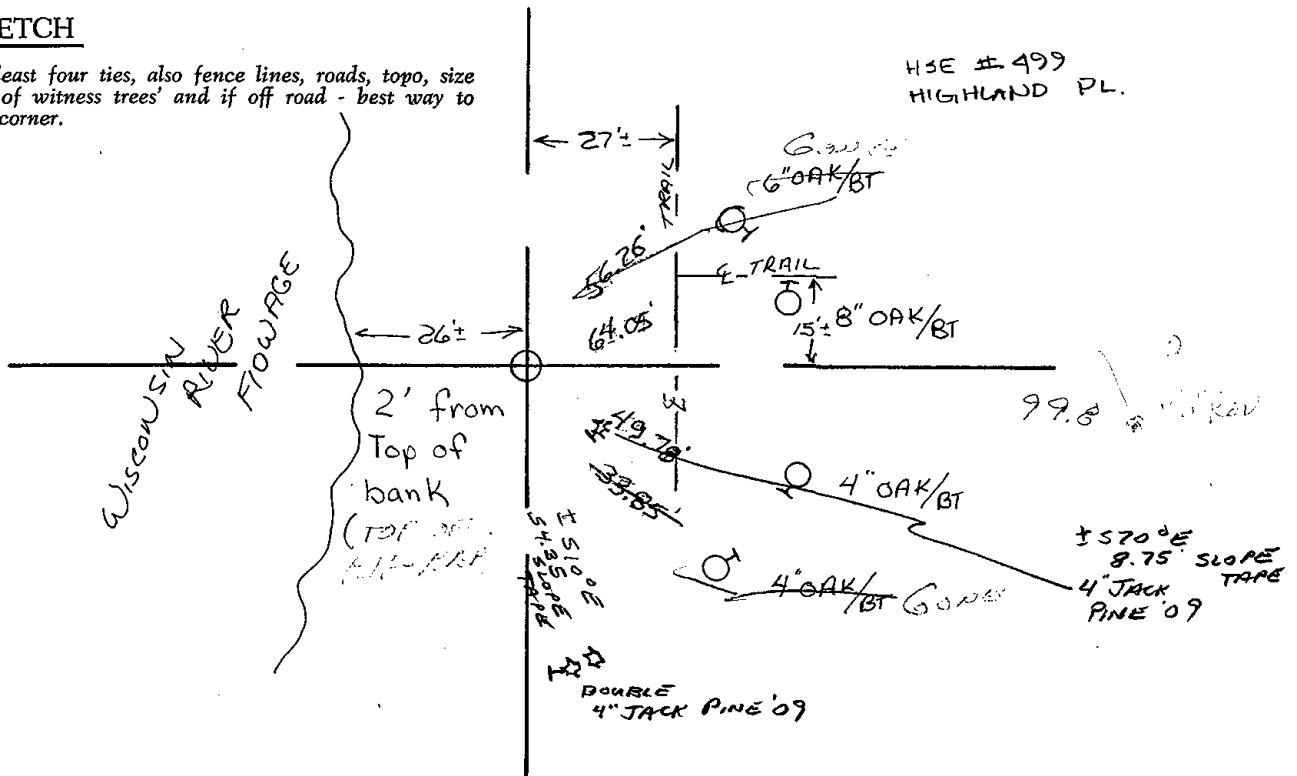 ETCH
east four ties, also fence lines, roads, topo, size
of witness trees' and if off road - best way to
corner.
HSE # 499
HIGHLAND PL.
27'±
TRAIL
6" OAK/BT
56.26'
℄ TRAIL
64.05'
15'± 8" OAK/BT
26'±
WISCONSIN
RIVER
FLOWAGE
2' from
Top of
bank
(TOP OF
99.8
49.78'
33.85'
4" OAK/BT
± S10°E
54.35 SLOPE
TAPE
± S70°E
8.75' SLOPE
TAPE
4" JACK
PINE '09
4" OAK/BT GONE
DOUBLE
4" JACK PINE '09